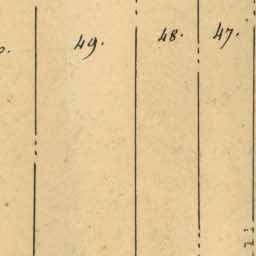 49. 48. 47.